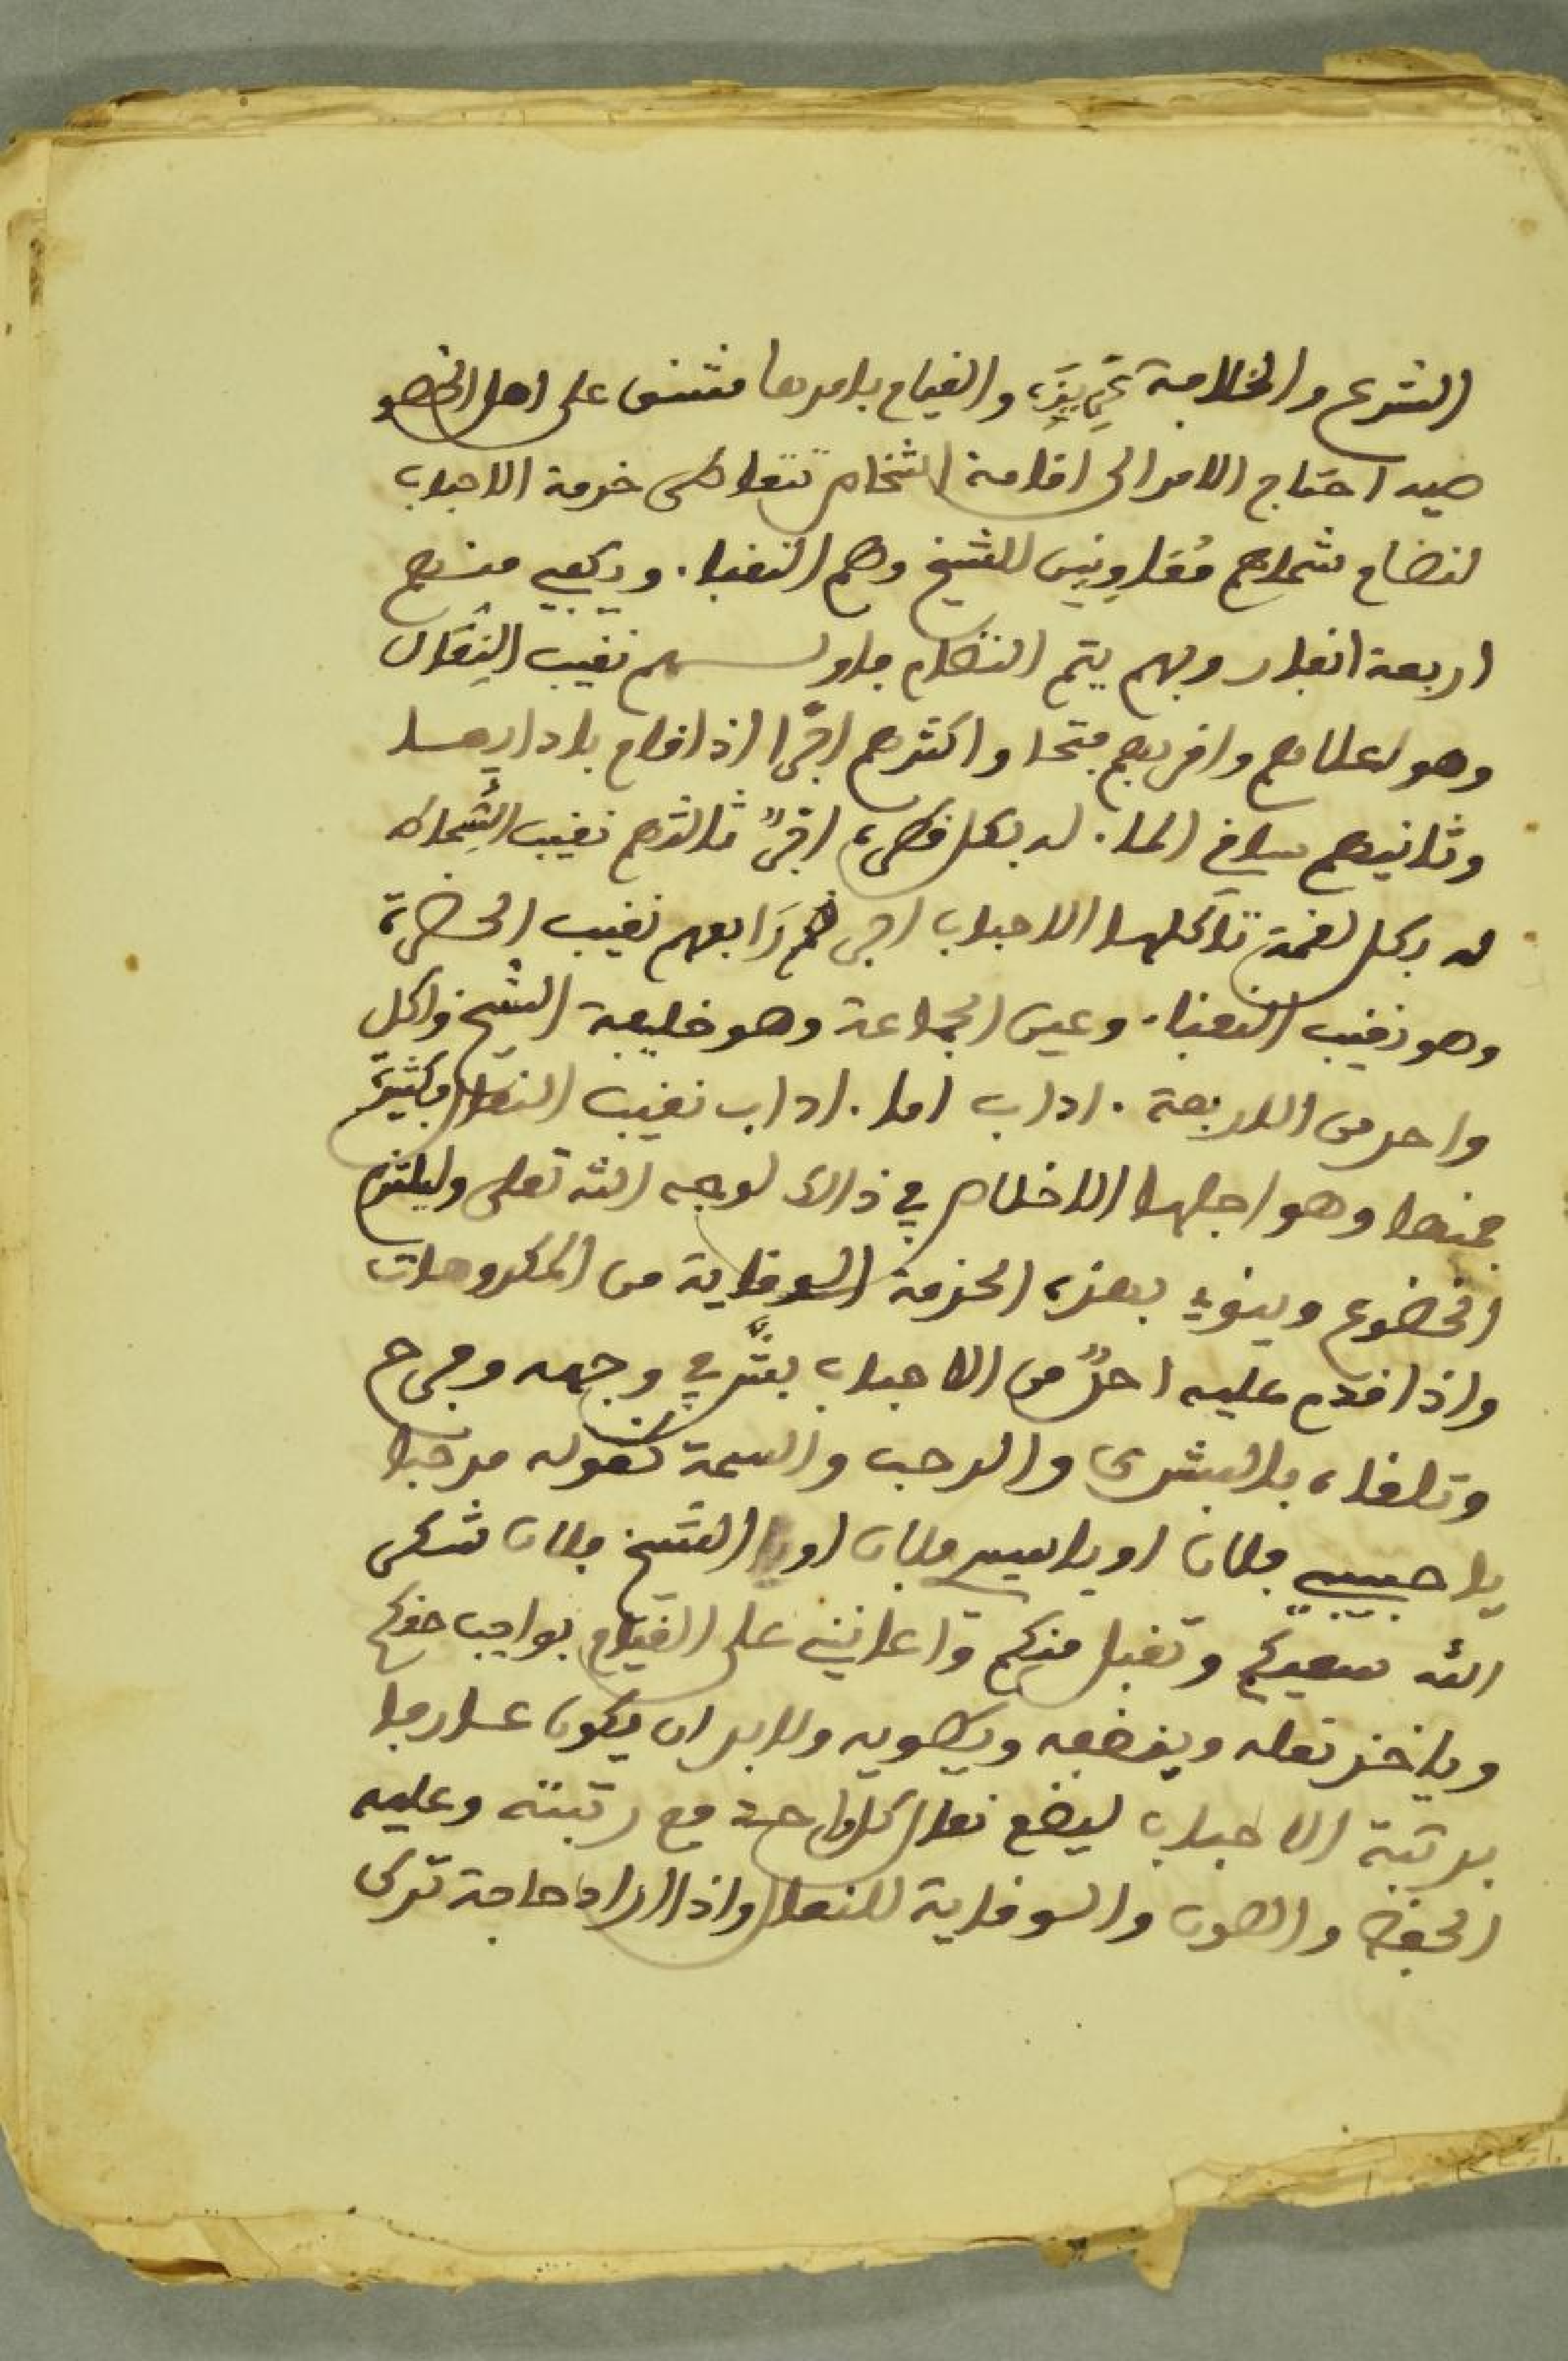 الشرع والخلافة عزيزة والقيام بامرها مشتق على اهل الخصو
صية احتاج الامر الى اقامة اشخاص تتعاطى خدمة الاحباب
لنظام شملهم مُعَاوِنِين للشيخ وهم النقباء ويكفي منهم
اربعة انفار وبهم يتم النظام فاولهم نقيب النِعَال
وهو اعلاهم واقربهم فتحا واكثرهم اجرًا اذا قام بادابها
وثانيهم ساقي الماء له بكل قطرة اجرٌ ثالثهم نقيب السِّماط
له بكل لقمة تاكلها الاحباب اجر ثم رَابعهم نقيب الحضرة
وهو نقيب النقباء وعين الجماعة وهو خليفة الشيخ ولكل
واحد من الاربعة اداب اما اداب نقيب النعال فكثيرة
فمنها وهو اجلها الاخلاص في ذالك لوجه الله تعلى وليلتزم
الخضوع وينوي بهذه الخدمة الوقاية من المكروهات
واذا قدم عليه احدٌ من الاحباب بشَّ في وجهه وفرح
وتلقاه بالبشرى والرحب والسعة كقوله مرحبا
يا حبيبي فلان او ياسيدي فلان او يا الشيخ فلان شكر
الله سعيكم وتقبل منكم واعانني على القيام بواجب حقكم
وياخذ نعله وينفضه ويطويه ولابد ان يكون عارفا
برتبة الاحباب ليضع نعل كل واحد مع رتبته وعليه
الحفظ والصون والوقاية للنعال واذا اراد حاجة ترك